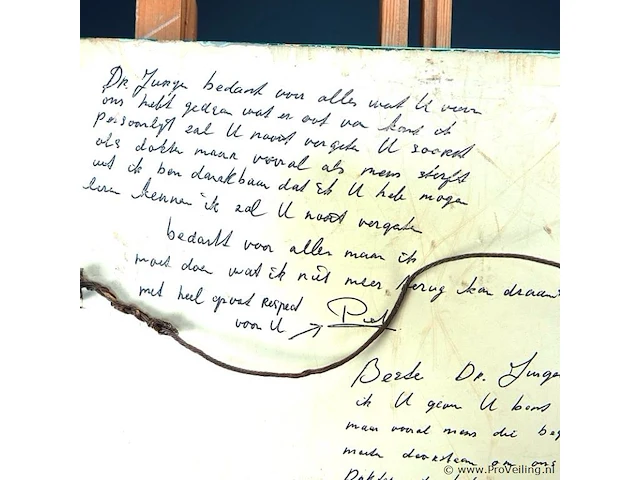 Dr. Junge bedankt voor alles wat U voor
ons hebt gedaan wat er ook van komt ik
Persoonlijk zal U nooit vergeten U
als dokter maar vooral als mens
ik ben dankbaar dat ik U heb mogen
leren kennen ik zal U nooit vergeten
bedankt voor alles maar ik
moet doen wat ik niet meer terug kan draaien
met heel groot Respect
voor U → Piet
Beste Dr. Junge
ik U geven U bent
maar vooral mens die
om ons
© www.ProVeiling.nl